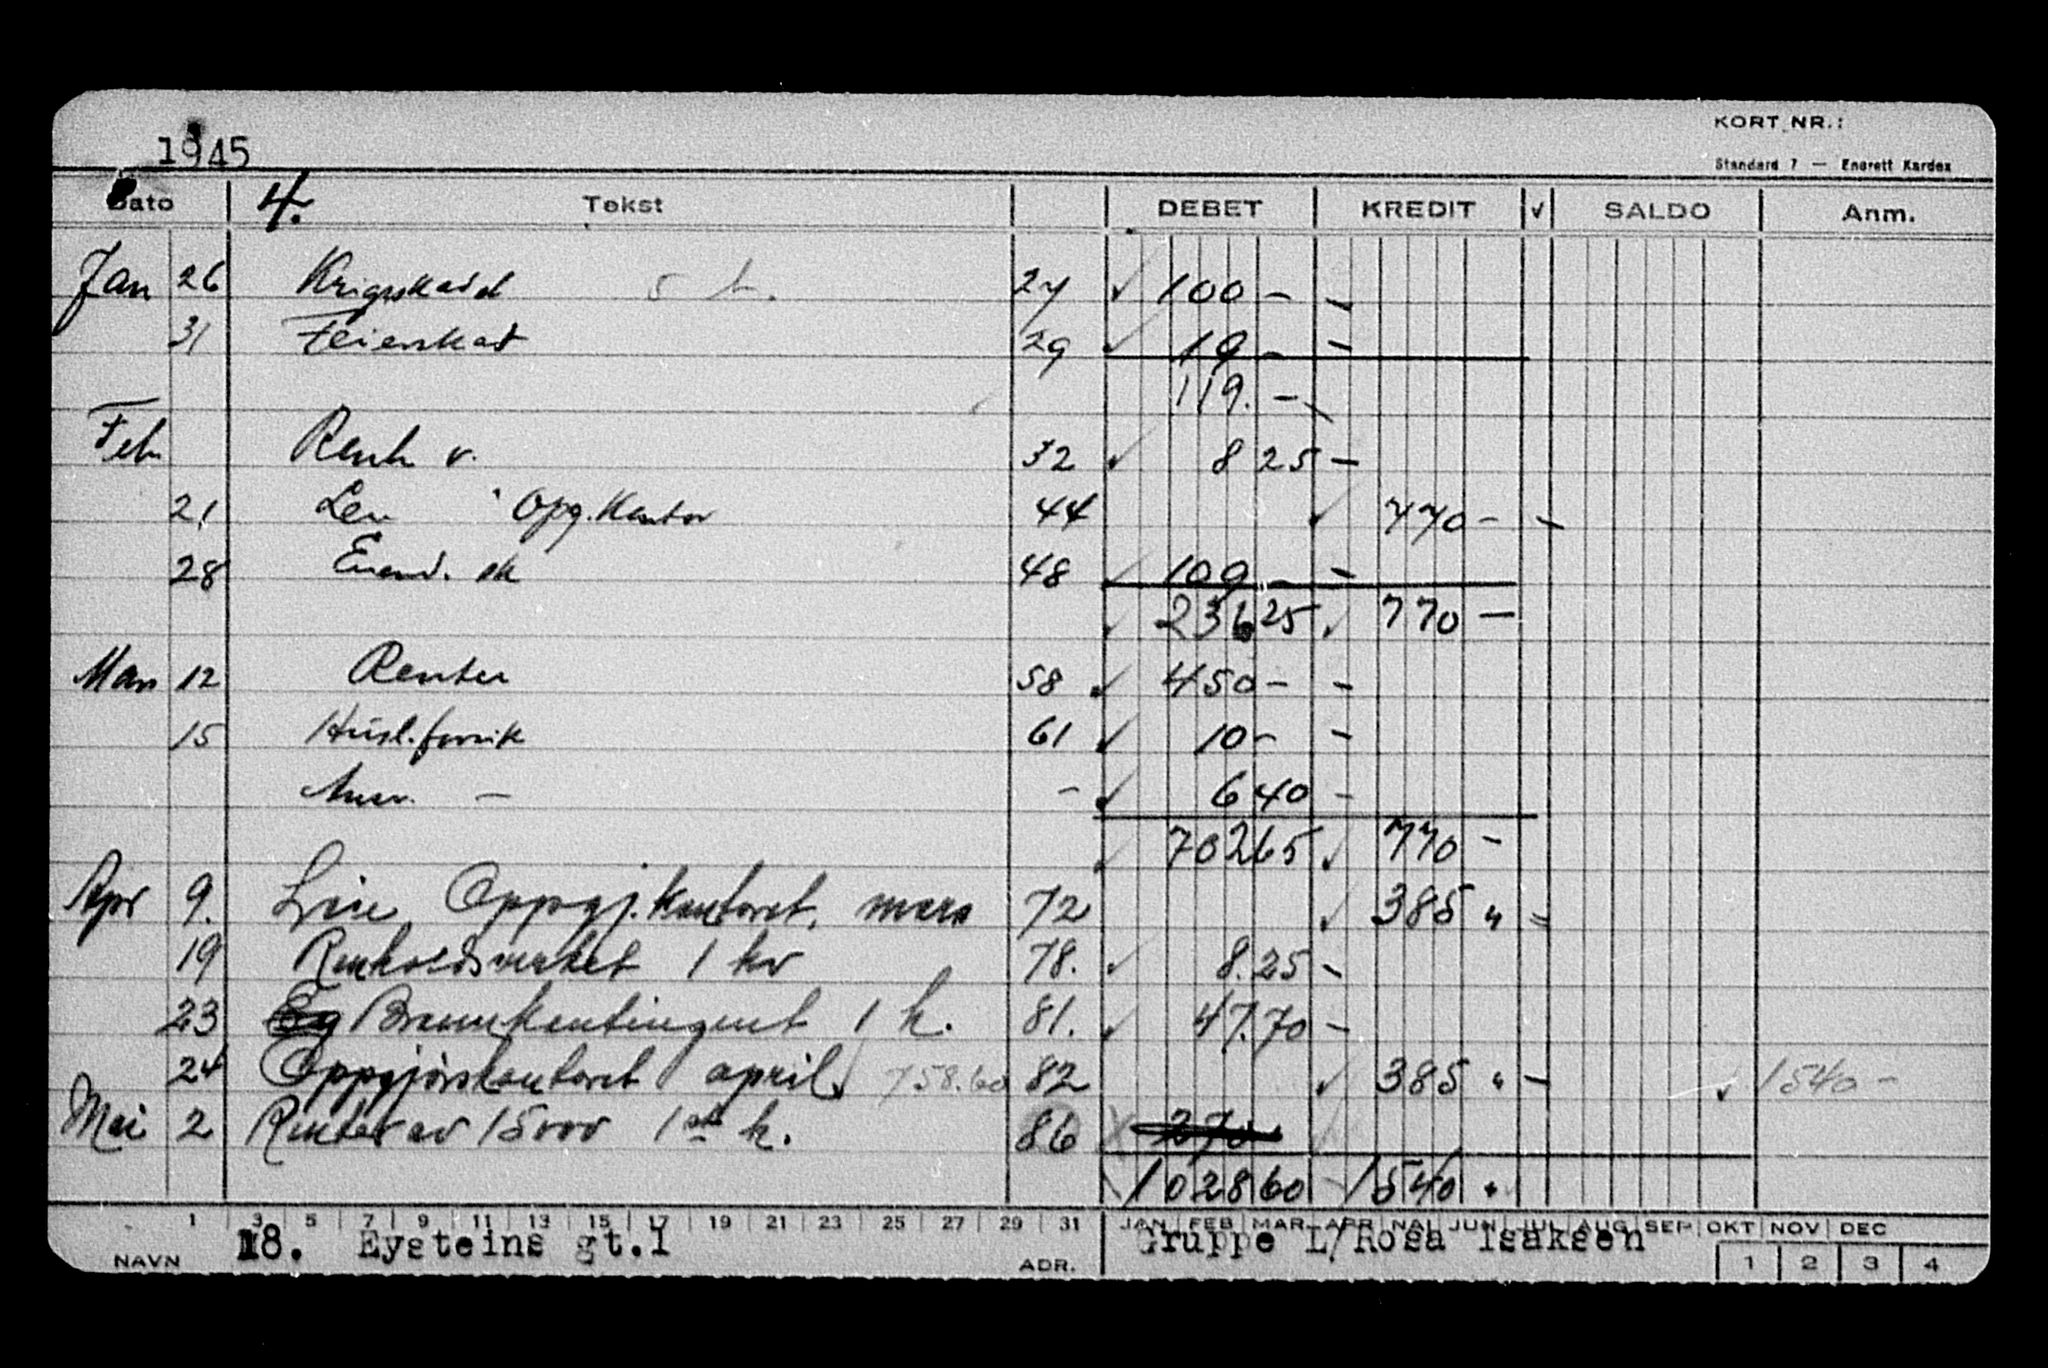 1945
KORT NR.:
Standard 7 — Enerett Kardex
Dato 4. Tekst DEBET KREDIT √ SALDO Anm.
Jan 26 Krigsskadet 5 t. 27 ✓ 100 - -
31 Feierskat 29 ✓ 19 - -
119. - -
Feb Renh v. 32 ✓ 8 25 -
21 Leie Opg. Kontor 44 ✓ 770 - -
28 Eiend. sk 48 ✓ 109 - -
✓ 236 25 ✓ 770 -
Mars 12 Renter 58 ✓ 450 - -
15 Husl. forsik 61 ✓ 10 - -
Ansv. - - ✓ 6 40 -
✓ 702 65 ✓ 770 -
Apr 9. Leie Oppgj. kontoret, mars 72 ✓ 385 " =
19 Renholdsverket 1 kv 78. ✓ 8.25 -
23 Brannkontingent 1 h. 81. ✓ 47.70 -
24 Oppgjørskontoret april ✓ 758.60 82 ✓ 385 " - ✓ 1540 -
Mai 2 Renter av 15000 1ste h. 86 270
1028 60 - 1540 "
1 3 5 7 9 11 13 15 17 19 21 23 25 27 29 31 JAN FEB MAR APR MAI JUN JUL AUG SEP OKT NOV DEC
NAVN 18. Eysteins gt.1 ADR. Gruppe L/Rosa Isaksen
1 2 3 4